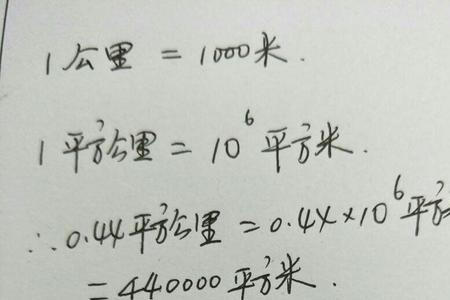 1公里 = 1000米.
1平方公里 = 10⁶平方米.
∴0.44平方公里 = 0.44×10⁶平方
= 440000平方米.